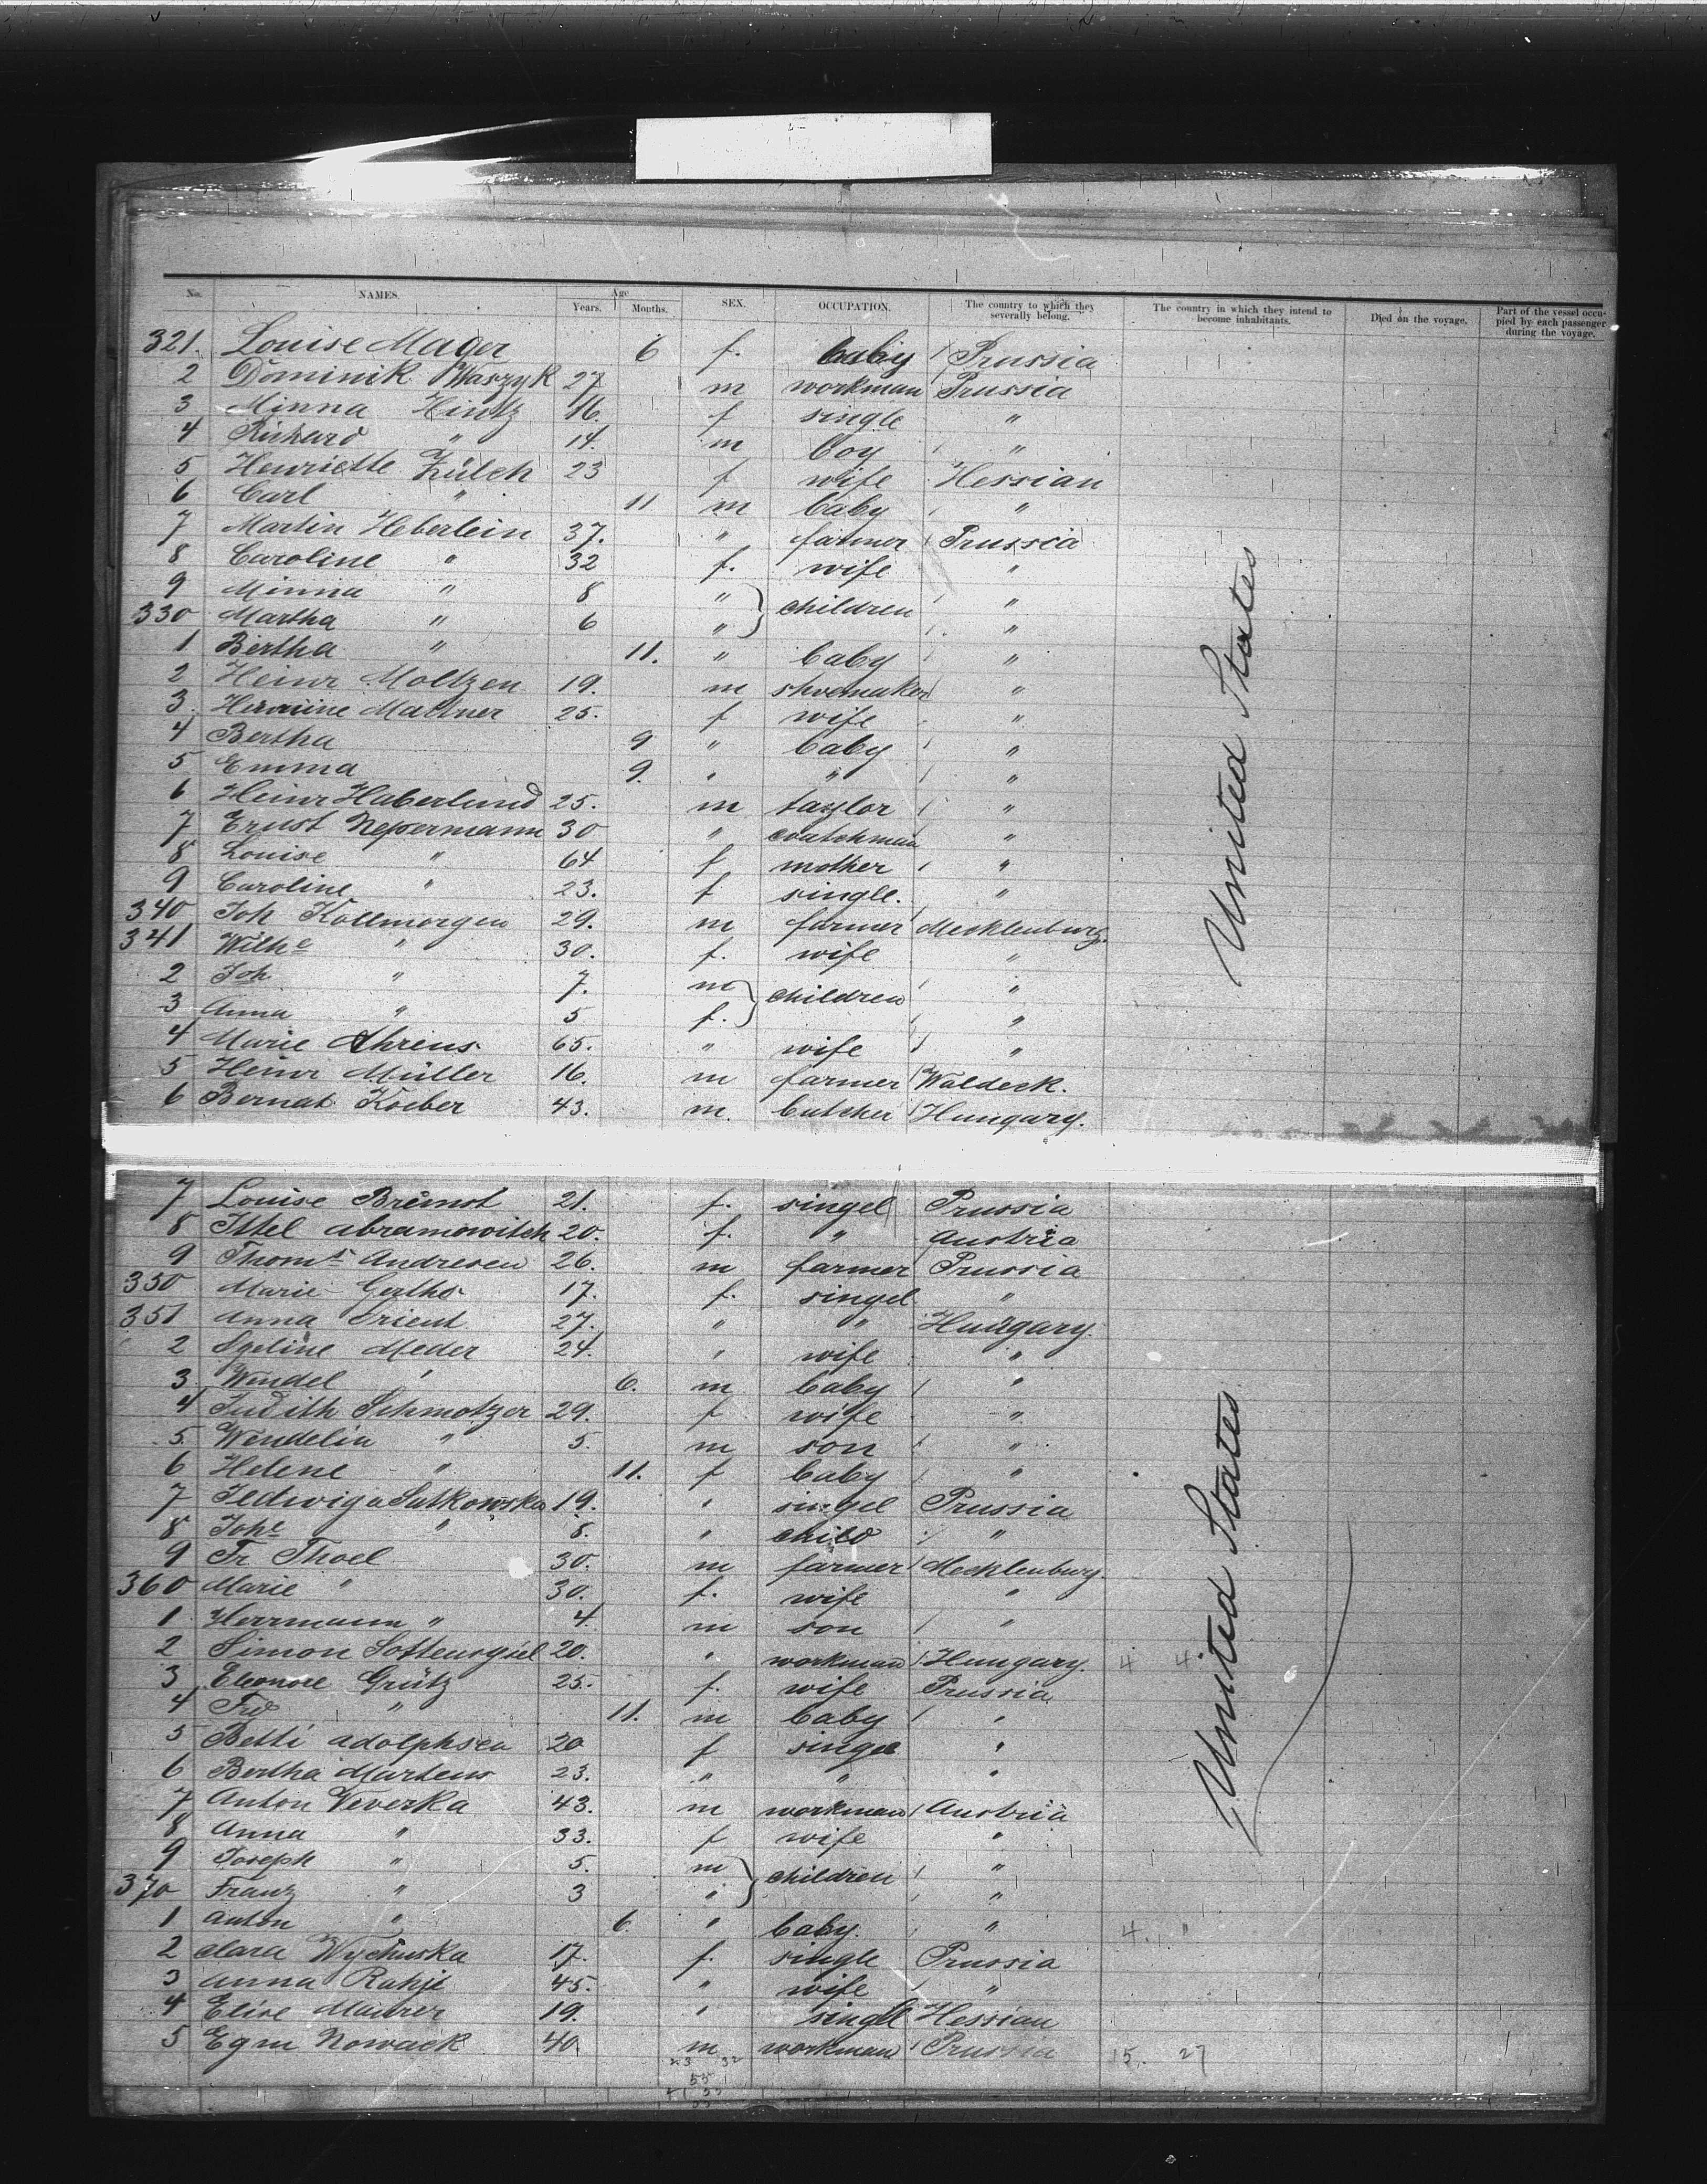 No. NAMES. Age Years. Months. SEX. OCCUPATION. The country to which they severally belong. The country in which they intend to become inhabitants. Died on the voyage. Part of the vessel occupied by each passenger during the voyage.
321. Louise Mager 6 f. baby Prussia
2 Dominik Waszyk 27 m workman Prussia
3 Minna Hintz 16. f single "
4 Richard " 14. m boy "
5 Henriette Zülch 23 f wife Hessian
6 Carl " 11 m baby "
7 Martin Heberlein 37. " farmer Prussia
8 Caroline " 32 f. wife "
9 Minna " 8 " children "
330 Martha " 6 " "
1 Bertha " 11. " baby "
2 Heinr Moltzen 19. m shoemaker "
3 Hermine Mattner 25. f wife "
4 Bertha 9 " baby "
5 Emma 9. " " "
6 Heinr Haberlund 25. m taylor "
7 Ernst Nepermann 30 " coatchman "
8 Louise " 64 f mother "
9 Caroline " 23. f single. "
340 Joh Kollmorgen 29. m farmer Mecklenburg.
341 Wilhe " 30. f. wife "
2 Joh " 7. m children "
3 Anna " 5 f. "
4 Marie Ahrens 65. " wife "
5 Heinr Müller 16. m farmer Waldeck.
6 Bernat Koeber 43. m. butcher Hungary.
7 Louise Bremst 21. f. singel Prussia
8 Ittel abramowitch 20. f. " Austria
9 Thoms Andresen 26. m farmer Prussia
350 Marie Gerths 17. f. singel "
351 Anna Orient 27. " " Hungary.
2 Szeline Meder 24. " wife "
3. Wendel " 6. m baby "
4 Judith Schmotzer 29. f wife "
5. Wendelin " 5. m son "
6 Helene " 11. f baby "
7 Jedwiga Sutkowska 19. " singel Prussia
8 Johe " 8. " child "
9 Fr Thoel 30. m farmer Mecklenburg.
360 Marie " 30. f. wife "
1 Herrmann " 4. m son "
2 Simon 20. " workman Hungary. 4 4
3 Eleonore Grütz 25. f. wife Prussia
4 Frd " 11. m baby "
5 Betti adolphsen 20 f singel "
6 Bertha Martens 23. " " "
7 Anton Veverka 43. m workman Austria
8 Anna " 33. f wife "
9 Joseph " 5. m children "
370 Franz " 3 " "
1 Anton " 6. " baby. " 4. "
2 Clara Wychuska 17. f. single Prussia
3 Anna Ruhji 45. " wife "
4 Elise Maurer 19. " singel Hessian
5 Egm Nowack 40. m workman Prussia 15. 27
23 32
55
United States
United States